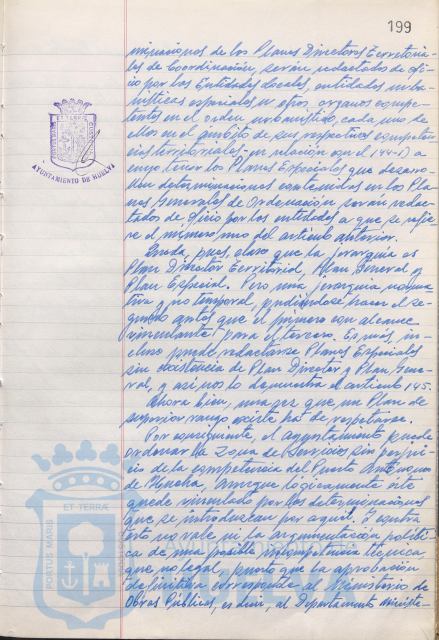 199
minaciones de los Planes Directores Territoria-
les de Coordinación, serán redactados de ofi-
cio por las Entidades Locales, entidades urba-
nísticas especiales u otros órganos compe-
tentes en el orden urbanístico, cada uno de
ellos en el ámbito de sus respectivas competen-
cias territoriales- en relación con el 144-1) a
cuyo tenor los Planes Especiales que desarro-
llen determinaciones contenidas en los Pla-
nes Generales de Ordenación serán redac-
tados de oficio por las entidades a que se refie-
re el número uno del artículo anterior.
Queda, pues, claro que la jerarquía es
Plan Director Territorial, Plan General y
Plan Especial. Pero una jerarquía norma-
tiva y no temporal, pudiéndose hacer el se-
gundo antes que el primero con alcance
vinculante para el tercero. Es más, in-
cluso puede redactarse Planes Especiales
sin existencia de Plan Director y Plan Gene-
ral, y así nos lo demuestra el artículo 145.
Ahora bien, una vez que un Plan de
superior rango existe ha de respetarse.
Por consiguiente, el Ayuntamiento puede
ordenar la Zona de Servicios sin perjui-
cio de la competencia del Puerto Autónomo
de Huelva, aunque lógicamente éste
quede vinculado por las determinaciones
que se introduzcan por aquél. Y contra
esto no vale ni la argumentación políti-
ca de una posible incompetencia técnica
que no legal, puesto que la aprobación
definitiva corresponde al Ministerio de
Obras Públicas, es decir, al Departamento ministe-
AYUNTAMIENTO DE HUELVA
PORTUS MARIS
ET TERRÆ